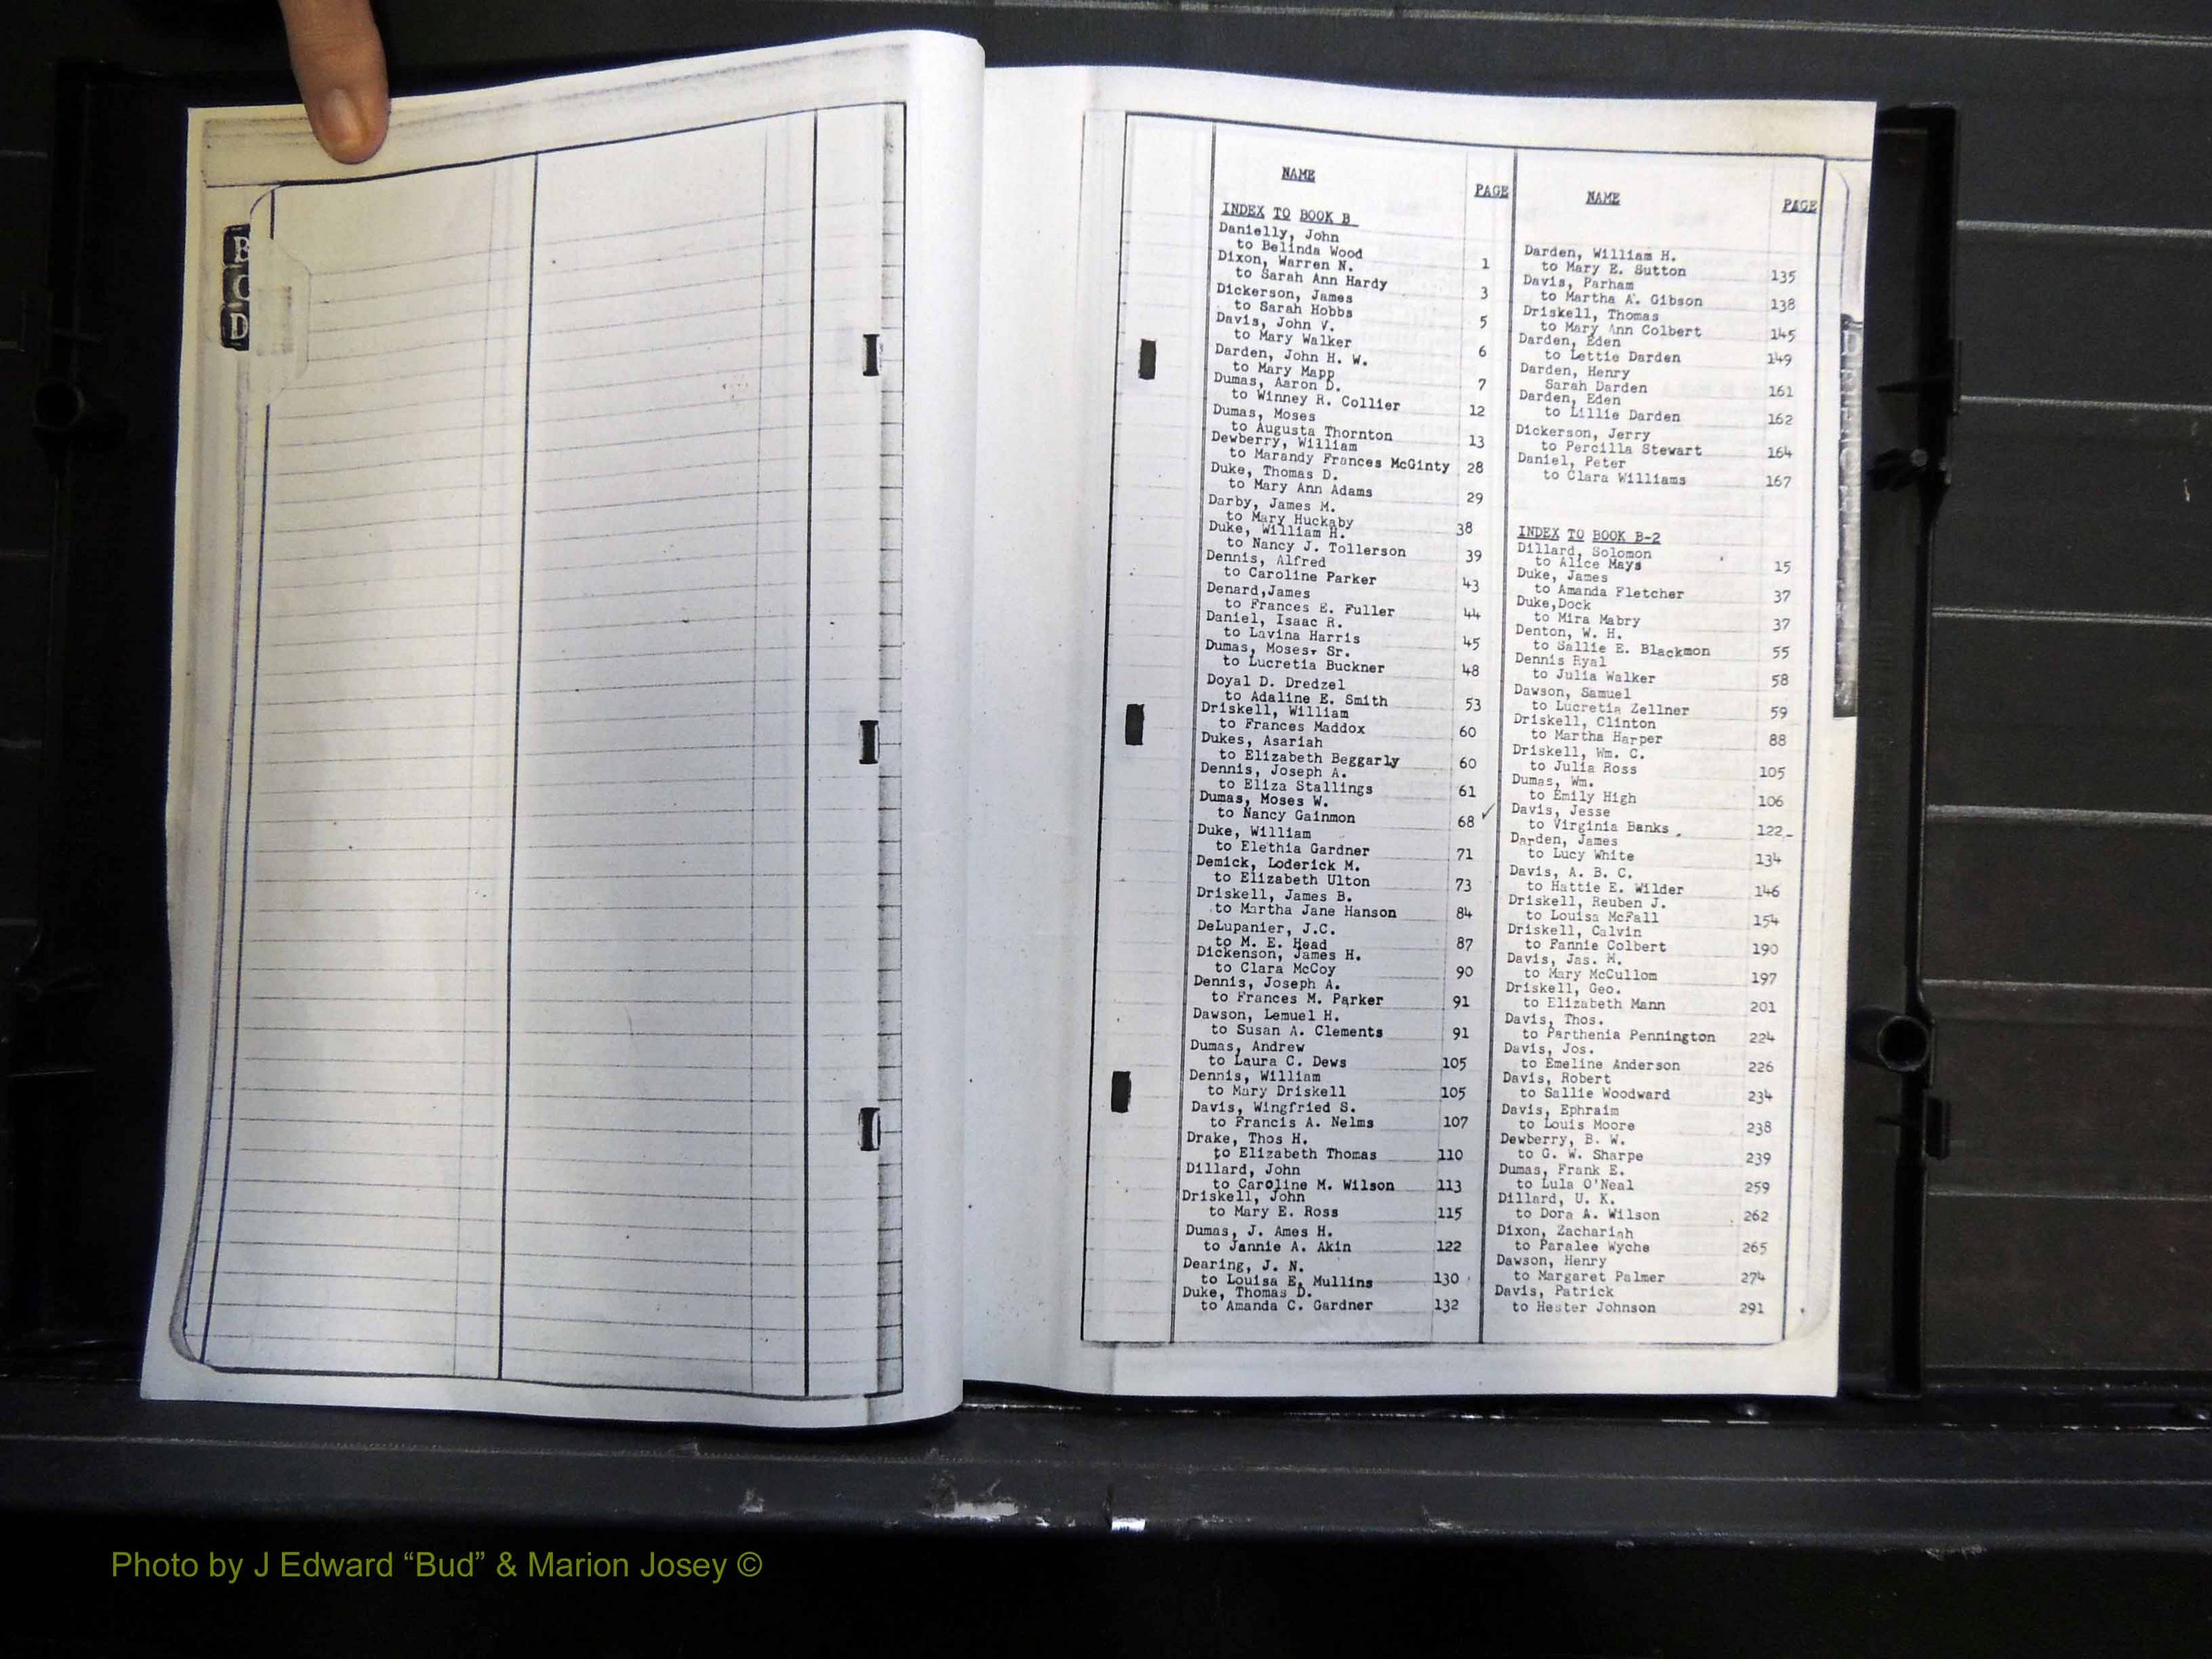 B
C
D
NAME
PAGE
INDEX TO BOOK B
Danielly, John
to Belinda Wood 1
Dixon, Warren N.
to Sarah Ann Hardy 3
Dickerson, James
to Sarah Hobbs 5
Davis, John V.
to Mary Walker 6
Darden, John H. W.
to Mary Mapp 7
Dumas, Aaron D.
to Winney R. Collier 12
Dumas, Moses
to Augusta Thornton 13
Dewberry, William
to Marandy Frances McGinty 28
Duke, Thomas D.
to Mary Ann Adams 29
Darby, James M.
to Mary Huckaby 38
Duke, William H.
to Nancy J. Tollerson 39
Dennis, Alfred
to Caroline Parker 43
Denard,James
to Frances E. Fuller 44
Daniel, Isaac R.
to Lavina Harris 45
Dumas, Moses, Sr.
to Lucretia Buckner 48
Doyal D. Dredzel
to Adaline E. Smith 53
Driskell, William
to Frances Maddox 60
Dukes, Asariah
to Elizabeth Beggarly 60
Dennis, Joseph A.
to Eliza Stallings 61
Dumas, Moses W.
to Nancy Gainmon 68 ✓
Duke, William
to Elethia Gardner 71
Demick, Loderick M.
to Elizabeth Ulton 73
Driskell, James B.
to Martha Jane Hanson 84
DeLupanier, J.C.
to M. E. Head 87
Dickenson, James H.
to Clara McCoy 90
Dennis, Joseph A.
to Frances M. Parker 91
Dawson, Lemuel H.
to Susan A. Clements 91
Dumas, Andrew
to Laura C. Dews 105
Dennis, William
to Mary Driskell 105
Davis, Wingfried S.
to Francis A. Nelms 107
Drake, Thos H.
to Elizabeth Thomas 110
Dillard, John
to Caroline M. Wilson 113
Driskell, John
to Mary E. Ross 115
Dumas, J. Ames H.
to Jannie A. Akin 122
Dearing, J. N.
to Louisa E. Mullins 130
Duke, Thomas D.
to Amanda C. Gardner 132
NAME
PAGE
Darden, William H.
to Mary E. Sutton 135
Davis, Parham
to Martha A. Gibson 138
Driskell, Thomas
to Mary Ann Colbert 145
Darden, Eden
to Lettie Darden 149
Darden, Henry
Sarah Darden 161
Darden, Eden
to Lillie Darden 162
Dickerson, Jerry
to Percilla Stewart 164
Daniel, Peter
to Clara Williams 167
INDEX TO BOOK B-2
Dillard, Solomon
to Alice Mays 15
Duke, James
to Amanda Fletcher 37
Duke,Dock
to Mira Mabry 37
Denton, W. H.
to Sallie E. Blackmon 55
Dennis Ryal
to Julia Walker 58
Dawson, Samuel
to Lucretia Zellner 59
Driskell, Clinton
to Martha Harper 88
Driskell, Wm. C.
to Julia Ross 105
Dumas, Wm.
to Emily High 106
Davis, Jesse
to Virginia Banks 122
Darden, James
to Lucy White 134
Davis, A. B. C.
to Hattie E. Wilder 146
Driskell, Reuben J.
to Louisa McFall 154
Driskell, Calvin
to Fannie Colbert 190
Davis, Jas. M.
to Mary McCullom 197
Driskell, Geo.
to Elizabeth Mann 201
Davis, Thos.
to Parthenia Pennington 224
Davis, Jos.
to Emeline Anderson 226
Davis, Robert
to Sallie Woodward 234
Davis, Ephraim
to Louis Moore 238
Dewberry, B. W.
to G. W. Sharpe 239
Dumas, Frank E.
to Lula O'Neal 259
Dillard, U. K.
to Dora A. Wilson 262
Dixon, Zachariah
to Paralee Wyche 265
Dawson, Henry
to Margaret Palmer 274
Davis, Patrick
to Hester Johnson 291
Photo by J Edward “Bud” & Marion Josey ©